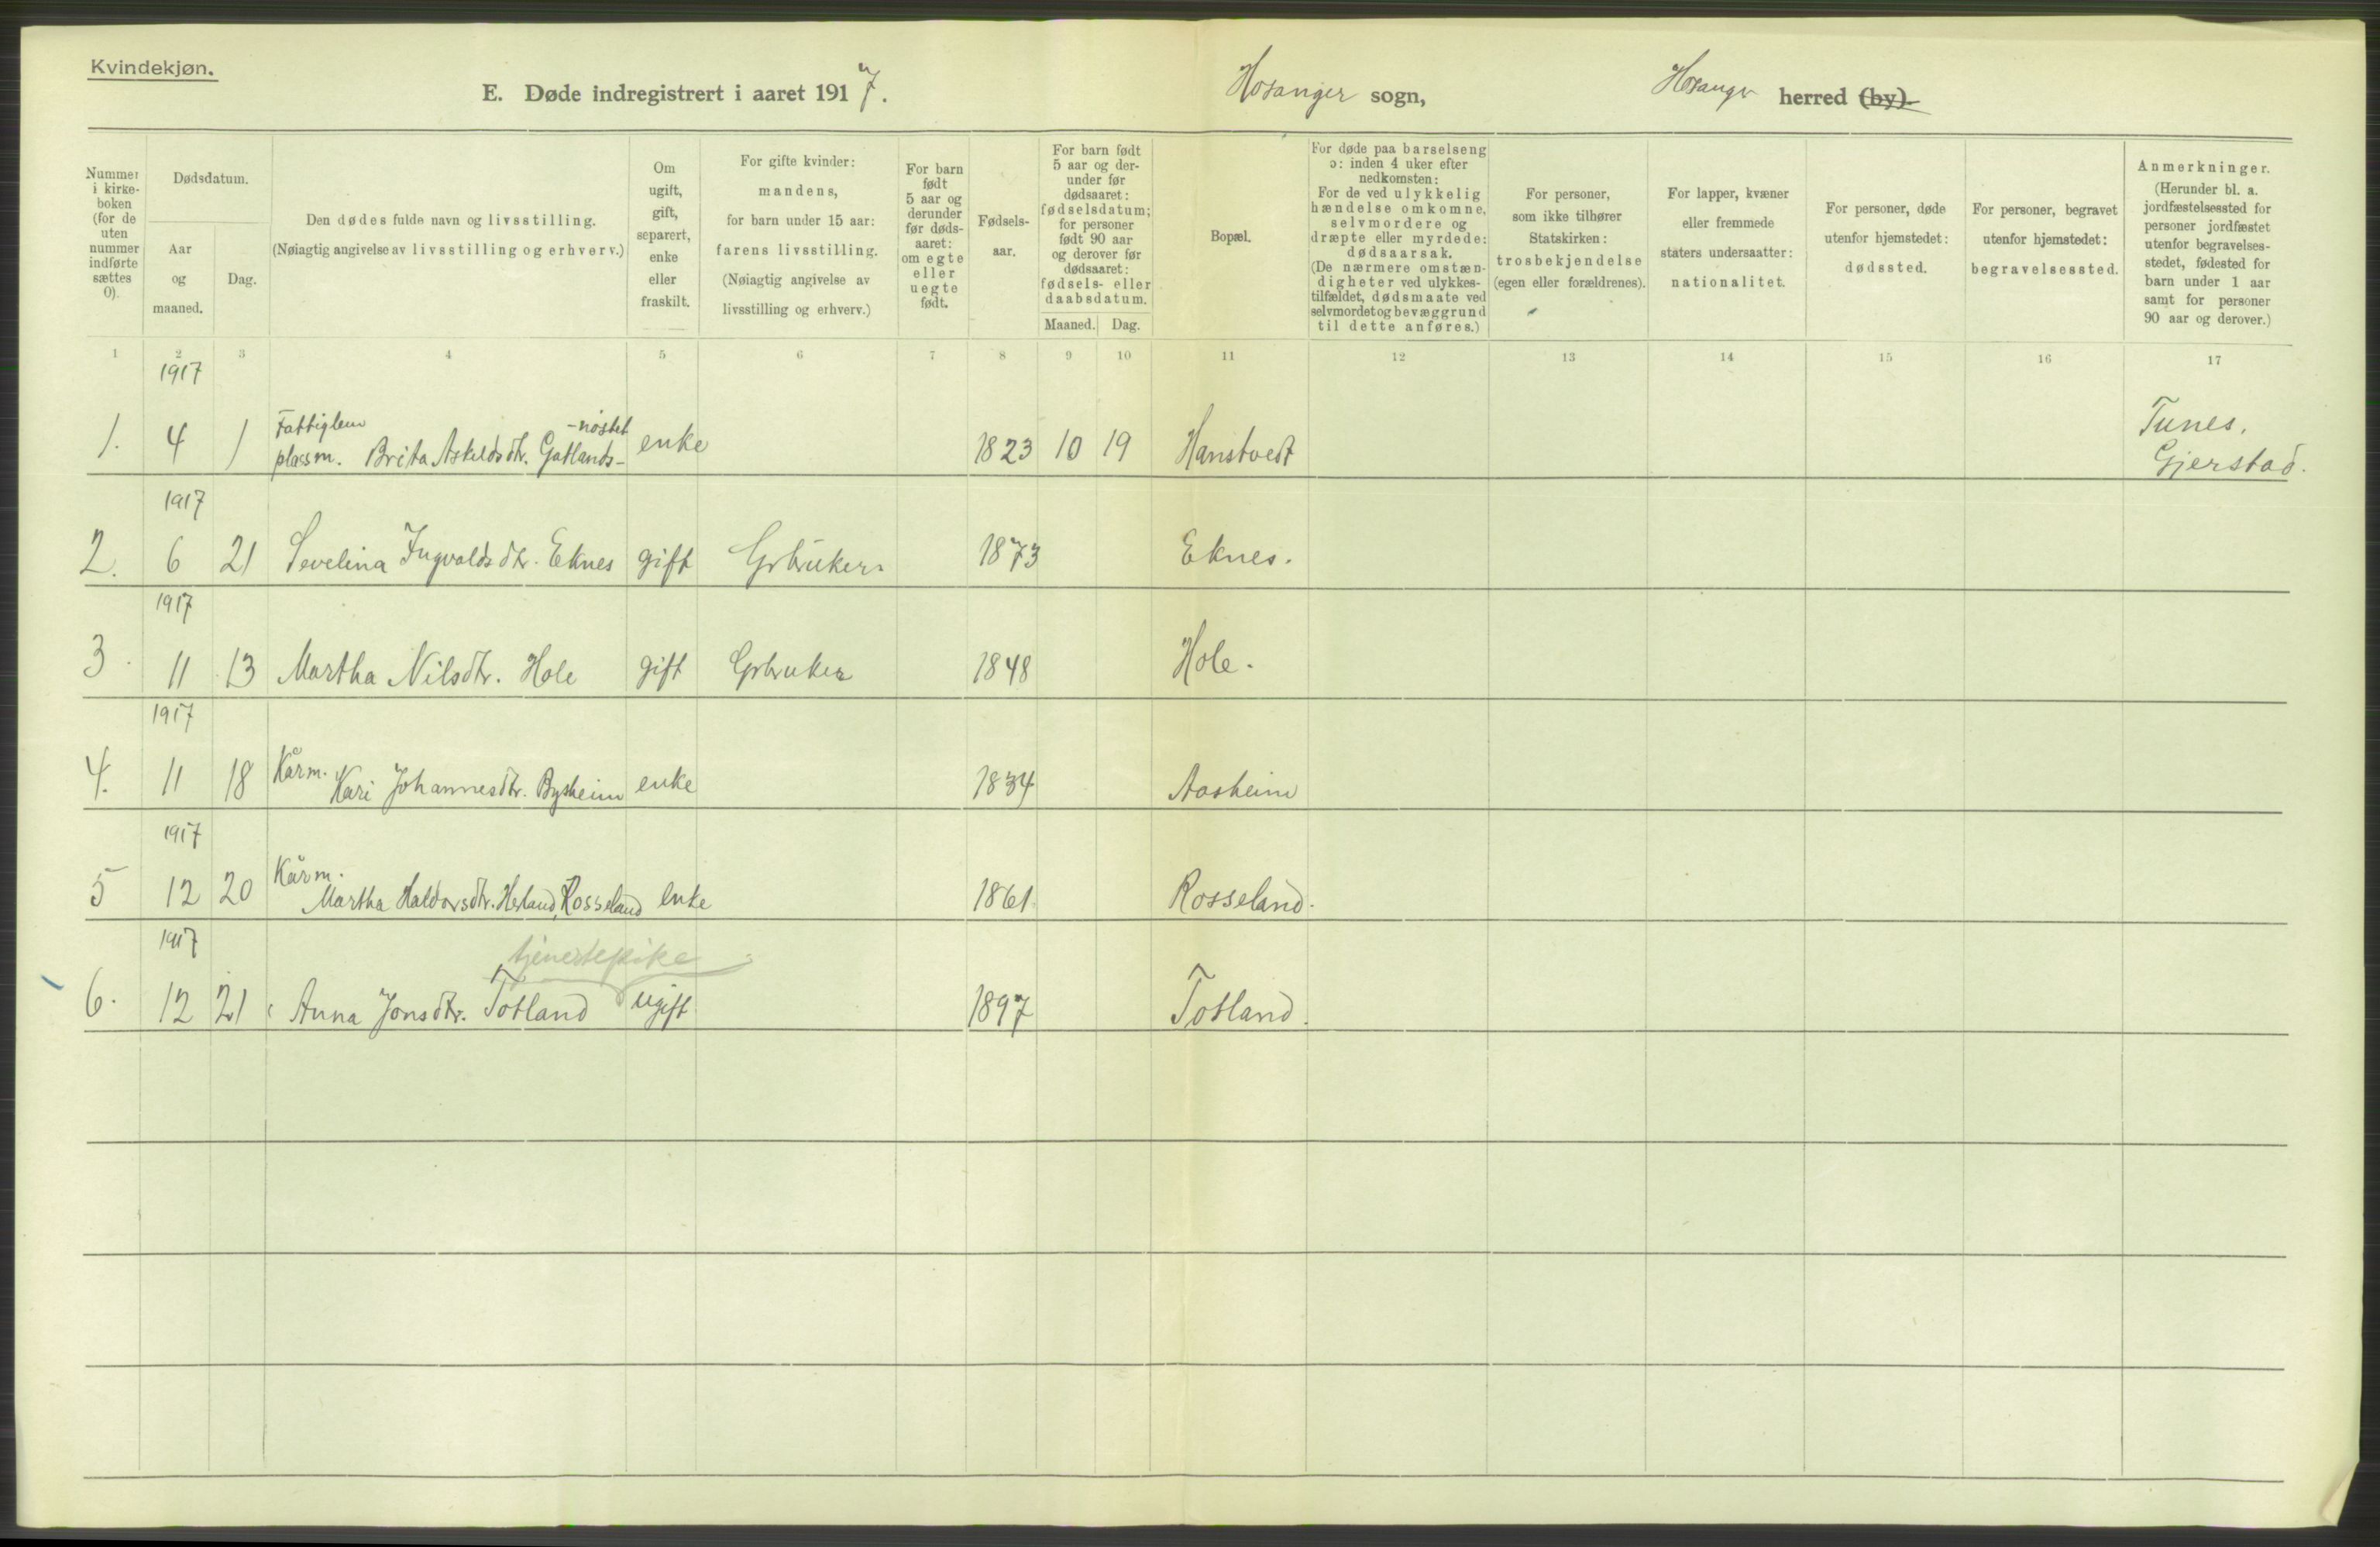 Kvindekjøn.
E. Døde indregistrert i aaret 1917.
Hosanger sogn,
Hosanger herred (by).
Nummer i kirkeboken (for de uten nummer indførte sættes 0).
Dødsdatum.
Aar og maaned.
Dag.
Den dødes fulde navn og livsstilling.
(Nøiagtig angivelse av livsstilling og erhverv.)
Om ugift, gift, separert, enke eller fraskilt.
For gifte kvinder: mandens, for barn under 15 aar: farens livsstilling.
(Nøiagtig angivelse av livsstilling og erhverv.)
For barn født 5 aar og derunder før dødsaaret: om egte eller uegte født.
Fødselsaar.
For barn født 5 aar og derunder før dødsaaret: fødselsdatum; for personer født 90 aar og derover før dødsaaret: fødsels- eller daabsdatum.
Maaned. Dag.
Bopæl.
For døde paa barselseng ɔ: inden 4 uker efter nedkomsten: For de ved ulykkelig hændelse omkomne, selvmordere og dræpte eller myrdede: dødsaarsak.
(De nærmere omstændigheter ved ulykkestilfældet, dødsmaate ved selvmordet og bevæggrund til dette anføres.)
For personer, som ikke tilhører Statskirken: trosbekjendelse (egen eller forældrenes).
For lapper, kvæner eller fremmede staters undersaatter: nationalitet.
For personer, døde utenfor hjemstedet: dødssted.
For personer, begravet utenfor hjemstedet: begravelsessted.
Anmerkninger.
(Herunder bl. a. jordfæstelsessted for personer jordfæstet utenfor begravelsesstedet, fødested for barn under 1 aar samt for personer 90 aar og derover.)
1 2 3 4 5 6 7 8 9 10 11 12 13 14 15 16 17
1917
1. 4 1 Fattiglem plassm. Brita Askeldsdtr. Gatlands-nøstet enke 1823 10 19 Hanstvedt Tunes, Gjerstad.
1917
2. 6 21 Sevelina Ingvaldsdtr. Eknes gift Gbruker 1873 Eknes.
1917
3. 11 13 Martha Nilsdtr. Hole gift Gbruker 1848 Hole.
1917
4. 11 18 Kårm. Kari Johannesdtr. Bysheim enke 1834 Aasheim
1917
5 12 20 Kårm. Martha Haldorsdtr. Herland, Rosseland enke 1861 Rosseland.
1917
tjenestepike
6. 12 21 Anna Jonsdtr. Totland ugift 1897 Totland.